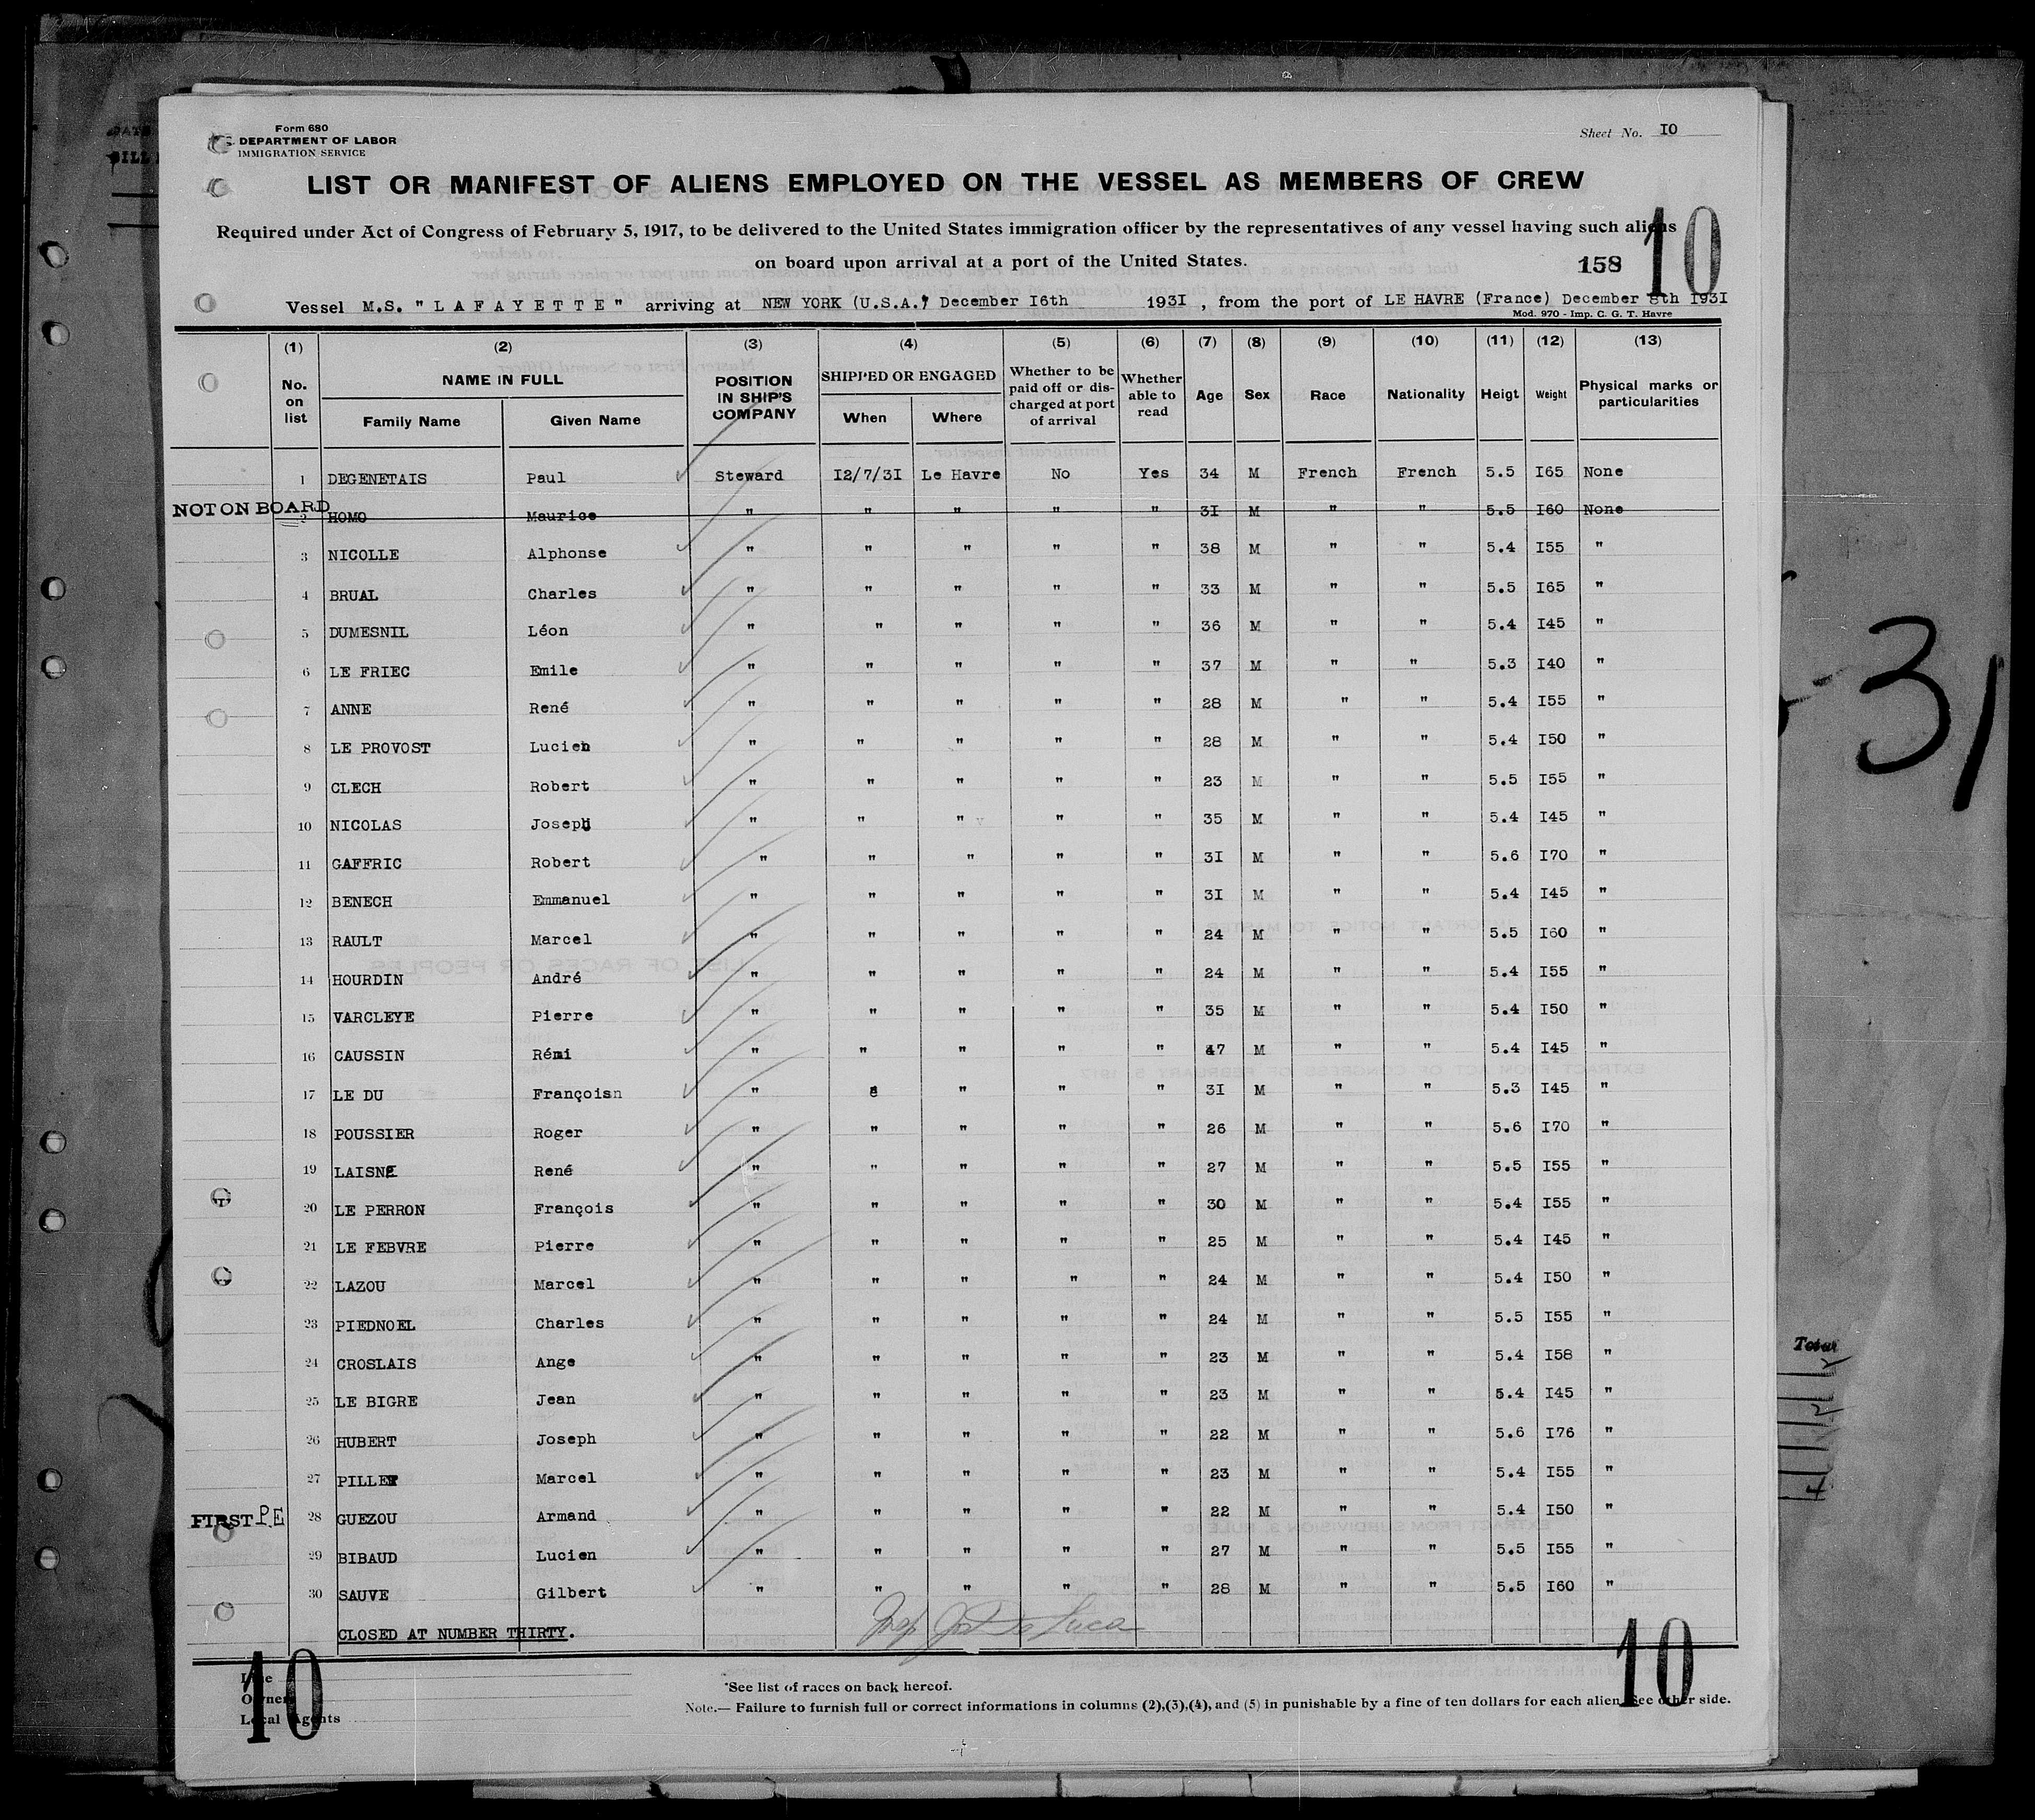 Form 680
DEPARTMENT OF LABOR
IMMIGRATION SERVICE
Sheet No. I0
LIST OR MANIFEST OF ALIENS EMPLOYED ON THE VESSEL AS MEMBERS OF CREW
Required under Act of Congress of February 5, 1917, to be delivered to the United States immigration officer by the representatives of any vessel having such aliens
on board upon arrival at a port of the United States.
158
10
Vessel M.S. "LAFAYETTE" arriving at NEW YORK (U.S.A.) December I6th 193I, from the port of LE HAVRE (France) December 8th I93I
Mod. 970 - Imp. C. G. T. Havre
(1) (2) (3) (4) (5) (6) (7) (8) (9) (10) (11) (12) (13)
No. on list NAME IN FULL Family Name Given Name POSITION IN SHIP'S COMPANY SHIPPED OR ENGAGED When Where Whether to be paid off or discharged at port of arrival Whether able to read Age Sex Race Nationality Heigt Weight Physical marks or particularities
1 DEGENETAIS Paul Steward I2/7/3I Le Havre No Yes 34 M French French 5.5 I65 None
NOT ON BOARD 2 HOMO Maurice " " " " " 3I M " " 5.5 I60 None
3 NICOLLE Alphonse " " " " " 38 M " " 5.4 I55 "
4 BRUAL Charles " " " " " 33 M " " 5.5 I65 "
5 DUMESNIL Léon " " " " " 36 M " " 5.4 I45 "
6 LE FRIEC Emile " " " " " 37 M " " 5.3 I40 "
7 ANNE René " " " " " 28 M " " 5.4 I55 "
8 LE PROVOST Lucien " " " " " 28 M " " 5.4 I50 "
9 CLECH Robert " " " " " 23 M " " 5.5 I55 "
10 NICOLAS Joseph " " " " " 35 M " " 5.4 I45 "
11 GAFFRIC Robert " " " " " 3I M " " 5.6 I70 "
12 BENECH Emmanuel " " " " " 3I M " " 5.4 I45 "
13 RAULT Marcel " " " " " 24 M " " 5.5 I60 "
14 HOURDIN André " " " " " 24 M " " 5.4 I55 "
15 VARCLEYE Pierre " " " " " 35 M " " 5.4 I50 "
16 CAUSSIN Rémi " " " " " 47 M " " 5.4 I45 "
17 LE DU Françoisn " " " " 3I M " " 5.3 I45 "
18 POUSSIER Roger " " " " " 26 M " " 5.6 I70 "
19 LAISNE René " " " " " 27 M " " 5.5 I55 "
20 LE PERRON François " " " " " 30 M " " 5.4 I55 "
21 LE FEBVRE Pierre " " " " " 25 M " " 5.4 I45 "
22 LAZOU Marcel " " " " " 24 M " " 5.4 I50 "
23 PIEDNOEL Charles " " " " " 24 M " " 5.5 I55 "
24 CROSLAIS Ange " " " " " 23 M " " 5.4 I58 "
25 LE BIGRE Jean " " " " " 23 M " " 5.4 I45 "
26 HUBERT Joseph " " " " " 22 M " " 5.6 I76 "
27 PILLET Marcel " " " " " 23 M " " 5.4 I55 "
FIRST P.E 28 GUEZOU Armand " " " " " 22 M " " 5.4 I50 "
29 BIBAUD Lucien " " " " " 27 M " " 5.5 I55 "
30 SAUVE Gilbert " " " " " 28 M " " 5.5 I60 "
CLOSED AT NUMBER THIRTY.
10
10
Line
Owners
Local Agents
*See list of races on back hereof.
Note.— Failure to furnish full or correct informations in columns (2),(3),(4), and (5) in punishable by a fine of ten dollars for each alien. See other side.
31
Total